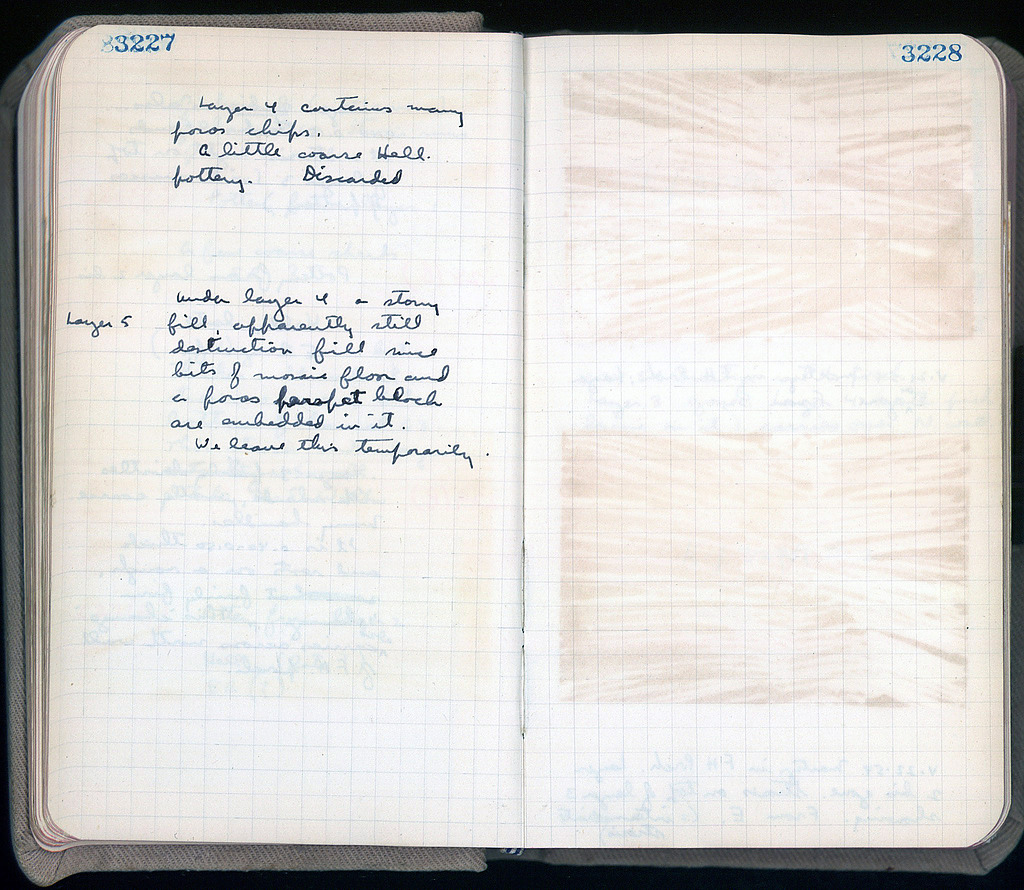 83227
Layer 4 contains many
poros chips.
A little coarse Hell.
pottery. Discarded
under layer 4 a stony
Layer 5 fill, apparently still
destruction fill since
bits of mosaic floor and
a poros parapet block
are embedded in it.
We leave this temporarily.
3228